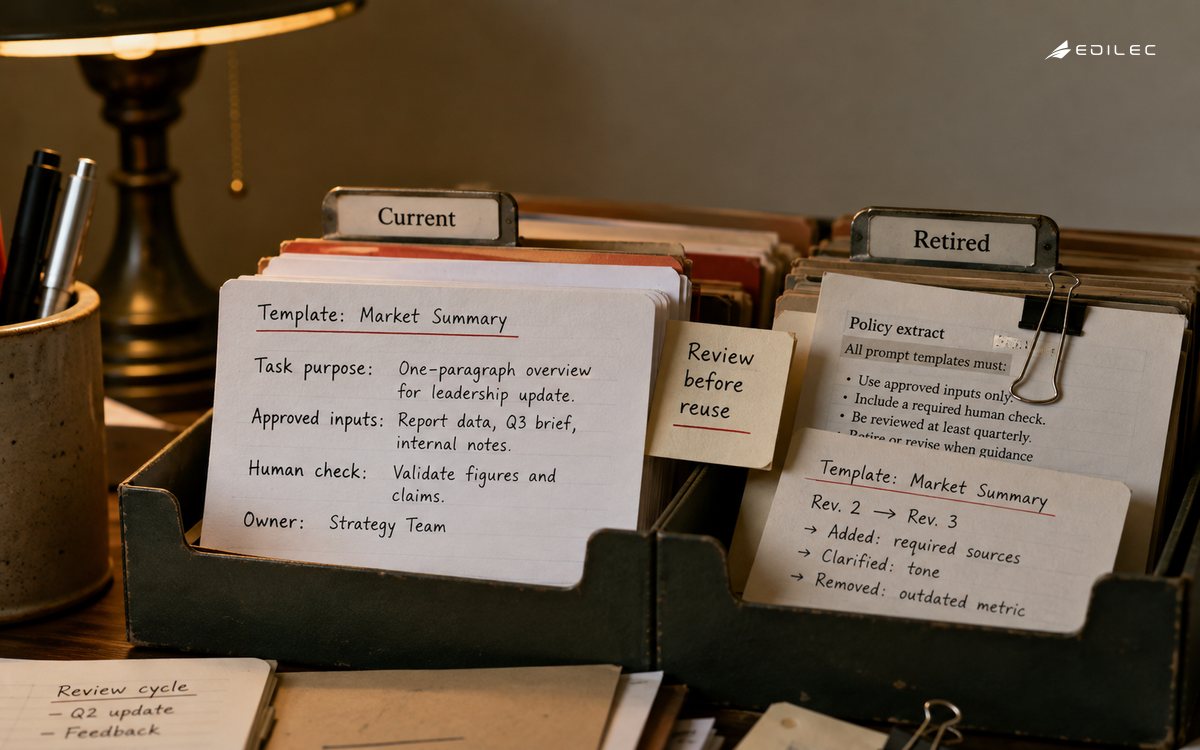 EDILEC
Current
Template: Market Summary
Task purpose: One-paragraph overview
for leadership update.
Approved inputs: Report data, Q3 brief,
internal notes.
Human check: Validate figures and
claims.
Owner: Strategy Team
Review
before
reuse
Retired
Policy extract
All prompt templates must:
• Use approved inputs only.
• Include a required human check.
• Be reviewed at least quarterly.
• Retire or revise when guidance
Template: Market Summary
Rev. 2 → Rev. 3
→ Added: required sources
→ Clarified: tone
→ Removed: outdated metric
Review cycle
– Q2 update
– Feedback